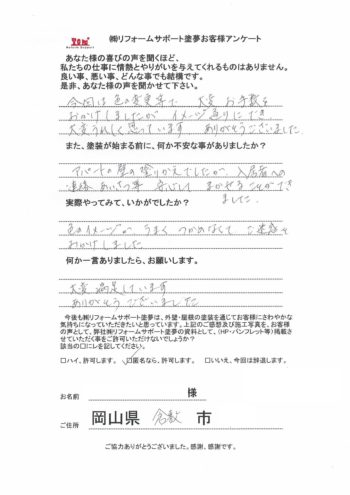 ㈱リフォームサポート塗夢お客様アンケート
あなた様の喜びの声を聞くほど、
私たちの仕事に情熱とやりがいを与えてくれるものはありません。
良い事、悪い事、どんな事でも結構です。
是非、あなた様の声を聞かせて下さい。
今回は色の変更等で 大変 お手数を
おかけしましたが イメージ通りにでき
大変うれしく思っています ありがとうございました
また、塗装が始まる前に、何か不安な事がありましたか？
アパートの壁の塗りかえでしたが、入居者への
連絡 あいさつ等 安心して まかせることができ
ました。
実際やってみて、いかがでしたか？
色のイメージが うまく つかめなくて ご迷惑を
おかけしました
何か一言ありましたら、お願いします。
大変 満足しています
ありがとう ございました
今後も㈱リフォームサポート塗夢は、外壁・屋根の塗装を通じてお客様にさわやかな
気持ちになっていただきたいと思っています。上記のご感想及び施工写真を、お客様
の声として、弊社㈱リフォームサポート塗夢の資料として、（HP・パンフレット等）掲載さ
せていただく事をご許可いただけないでしょうか？
該当の□にレを記してください。
□ハイ、許可します。 ☑匿名なら、許可します。 □いいえ、今回は辞退します。
お名前 様
ご住所 岡山県 倉敷 市
ご協力ありがとうございました。感謝、感謝です。